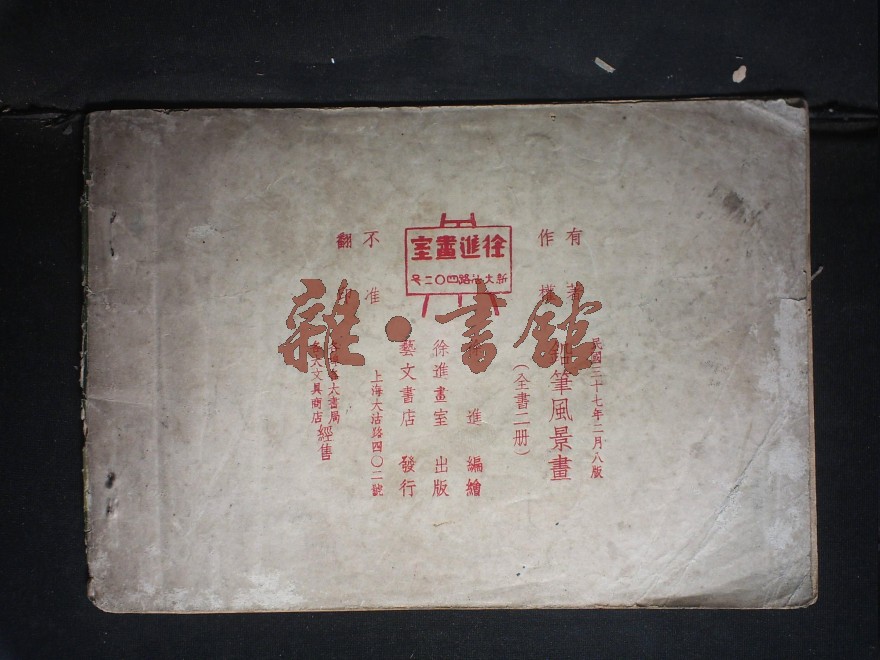 有著
作權
徐進畫室
新大沽路四〇二号
不准
翻印
雜·書館
民國三十七年二月八版
鉛筆風景畫
(全書二册)
進 編繪
徐進畫室 出版
藝文書店 發行
上海大沽路四〇二號
大書局
各大文具商店
經售